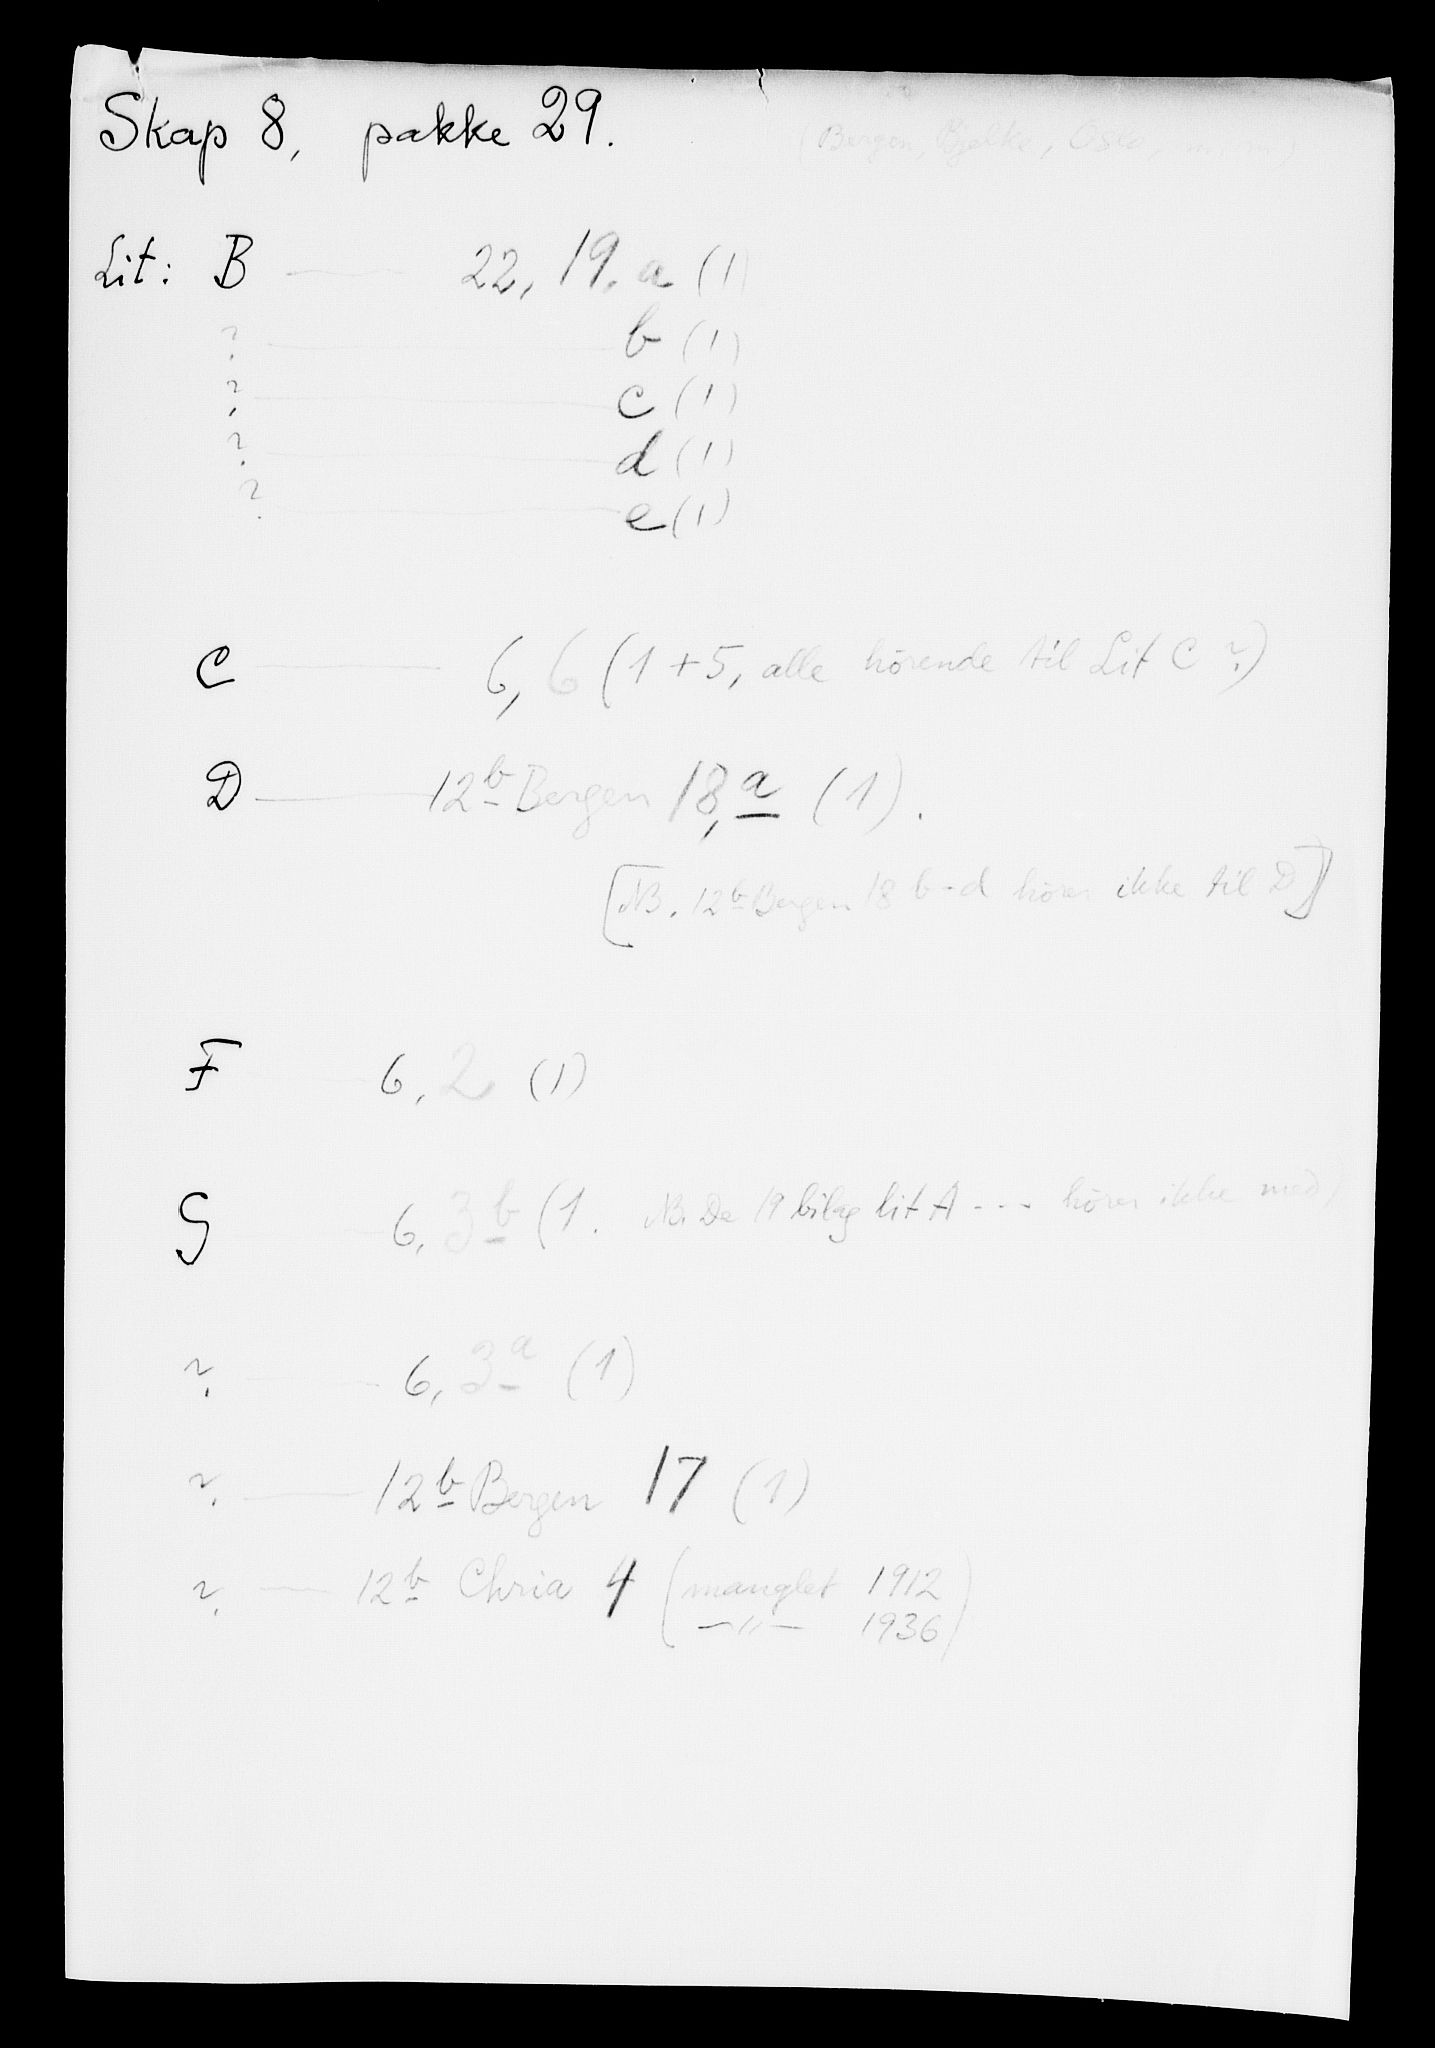 Skap 8, pakke 29. (Bergen, Bjelke, Oslo, m.m.)
Lit: B — 22, 19. a (1)
? — b (1)
? — c (1)
? — d (1)
? — e (1)
C — 6, 6 (1+5, alle hörende til Lit C ?)
D — 12b Bergen 18, a (1).
[NB. 12b Bergen 18 b-d hörer ikke til D]
F — 6, 2 (1)
G — 6, 3b (1. NB. De 19 bilag lit A --- hörer ikke med)
? — 6, 3a (1)
? — 12b Bergen 17 (1)
? — 12b Chria 4 (manglet 1912
—〃— 1936)